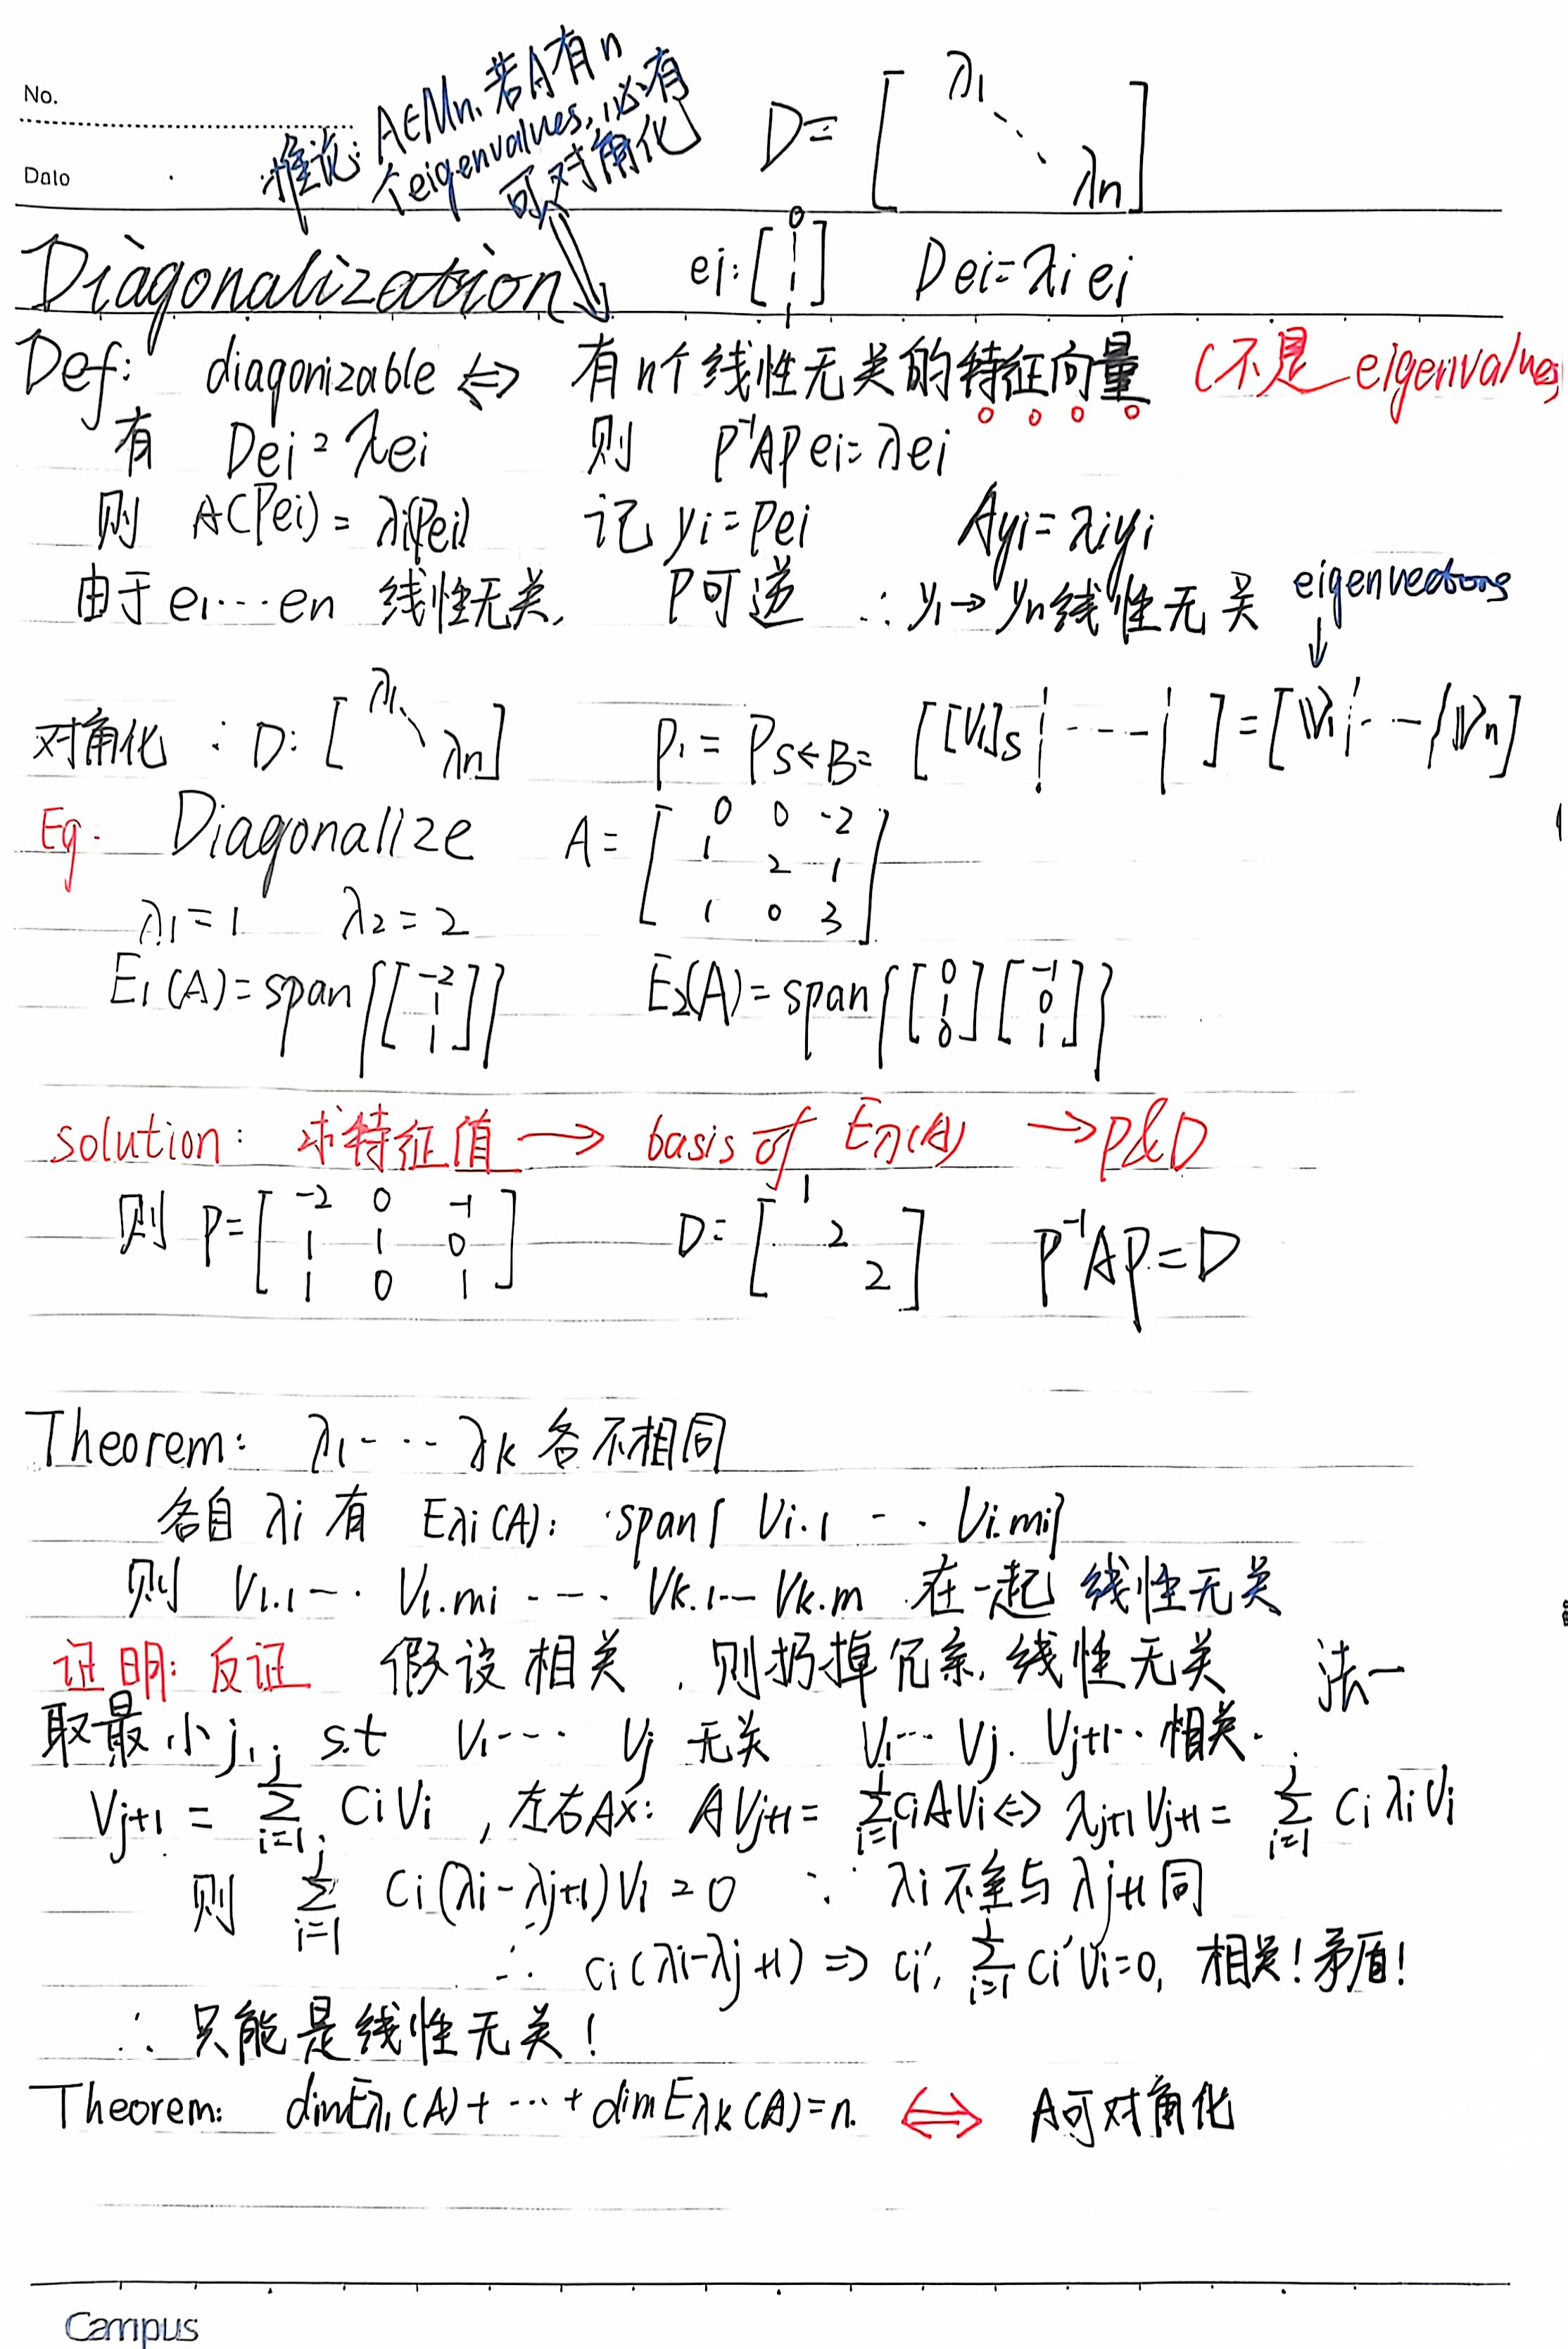 No.
Date
推论: A∈Mn. 若A有n
个eigenvalues, 必有
可对角化
D= [ λ1 ⋱ λn ]
Diagonalization
ei: [ 0 1 1 1 ] Dei=λiei
Def: diagonizable ⇔ 有n个线性无关的特征向量 (不是eigenvalues)
有 Dei=λei 则 P⁻¹APei=λei
则 A(Pei)=λi(Pei) 记 yi=Pei Ayi=λiyi
由于e1⋯en 线性无关, P可逆 ∴ y1→yn线性无关
eigenvectors
↓
对角化: D: [ λ1 ⋱ λn ] P1 = P S←B = [ [V1]S ¦ ---- ¦ ] = [ V1 ¦ -- ¦ Vn ]
Eg. Diagonalize A= [ 0 0 -2
1 2 1
1 0 3 ]
λ1=1 λ2=2
E1(A)=span{ [ -2 1 1 ] } E2(A)=span{ [ 0 1 0 ] [ -1 0 1 ] }
solution: 求特征值 → basis of Eλ(A) → P&D
则 P= [ -2 0 -1
1 1 0
1 0 1 ] D= [ 1 2 2 ] P⁻¹AP=D
Theorem: λ1-⋯λk 各不相同
各自 λi 有 Eλi(A): span{ Vi.1 -- Vi.mi}
则 V1.1-- V1.mi --- Vk.1-- Vk.m 在一起 线性无关
证明: 反证 假设相关, 则扔掉冗余, 线性无关 法一
取最小j, s.t V1--- Vj 无关 V1-- Vj. Vj+1-- 相关.
Vj+1 = ∑_{i=1}^{j} CiVi , 左右Ax: AVj+1= ∑_{i=1}^{j} CiAVi ⇔ λj+1Vj+1= ∑_{i=1}^{j} CiλiVi
则 ∑_{i=1}^{j} Ci(λi-λj+1)Vi=0 ∵ λi不全与λj+1同
∴ Ci(λi-λj+1) ⇒ Ci', ∑_{i=1}^{j} Ci'Vi=0, 相关! 矛盾!
∴ 只能是线性无关!
Theorem: dimEλ1(A)+⋯+dimEλk(A)=n. ⇔ A可对角化
Campus